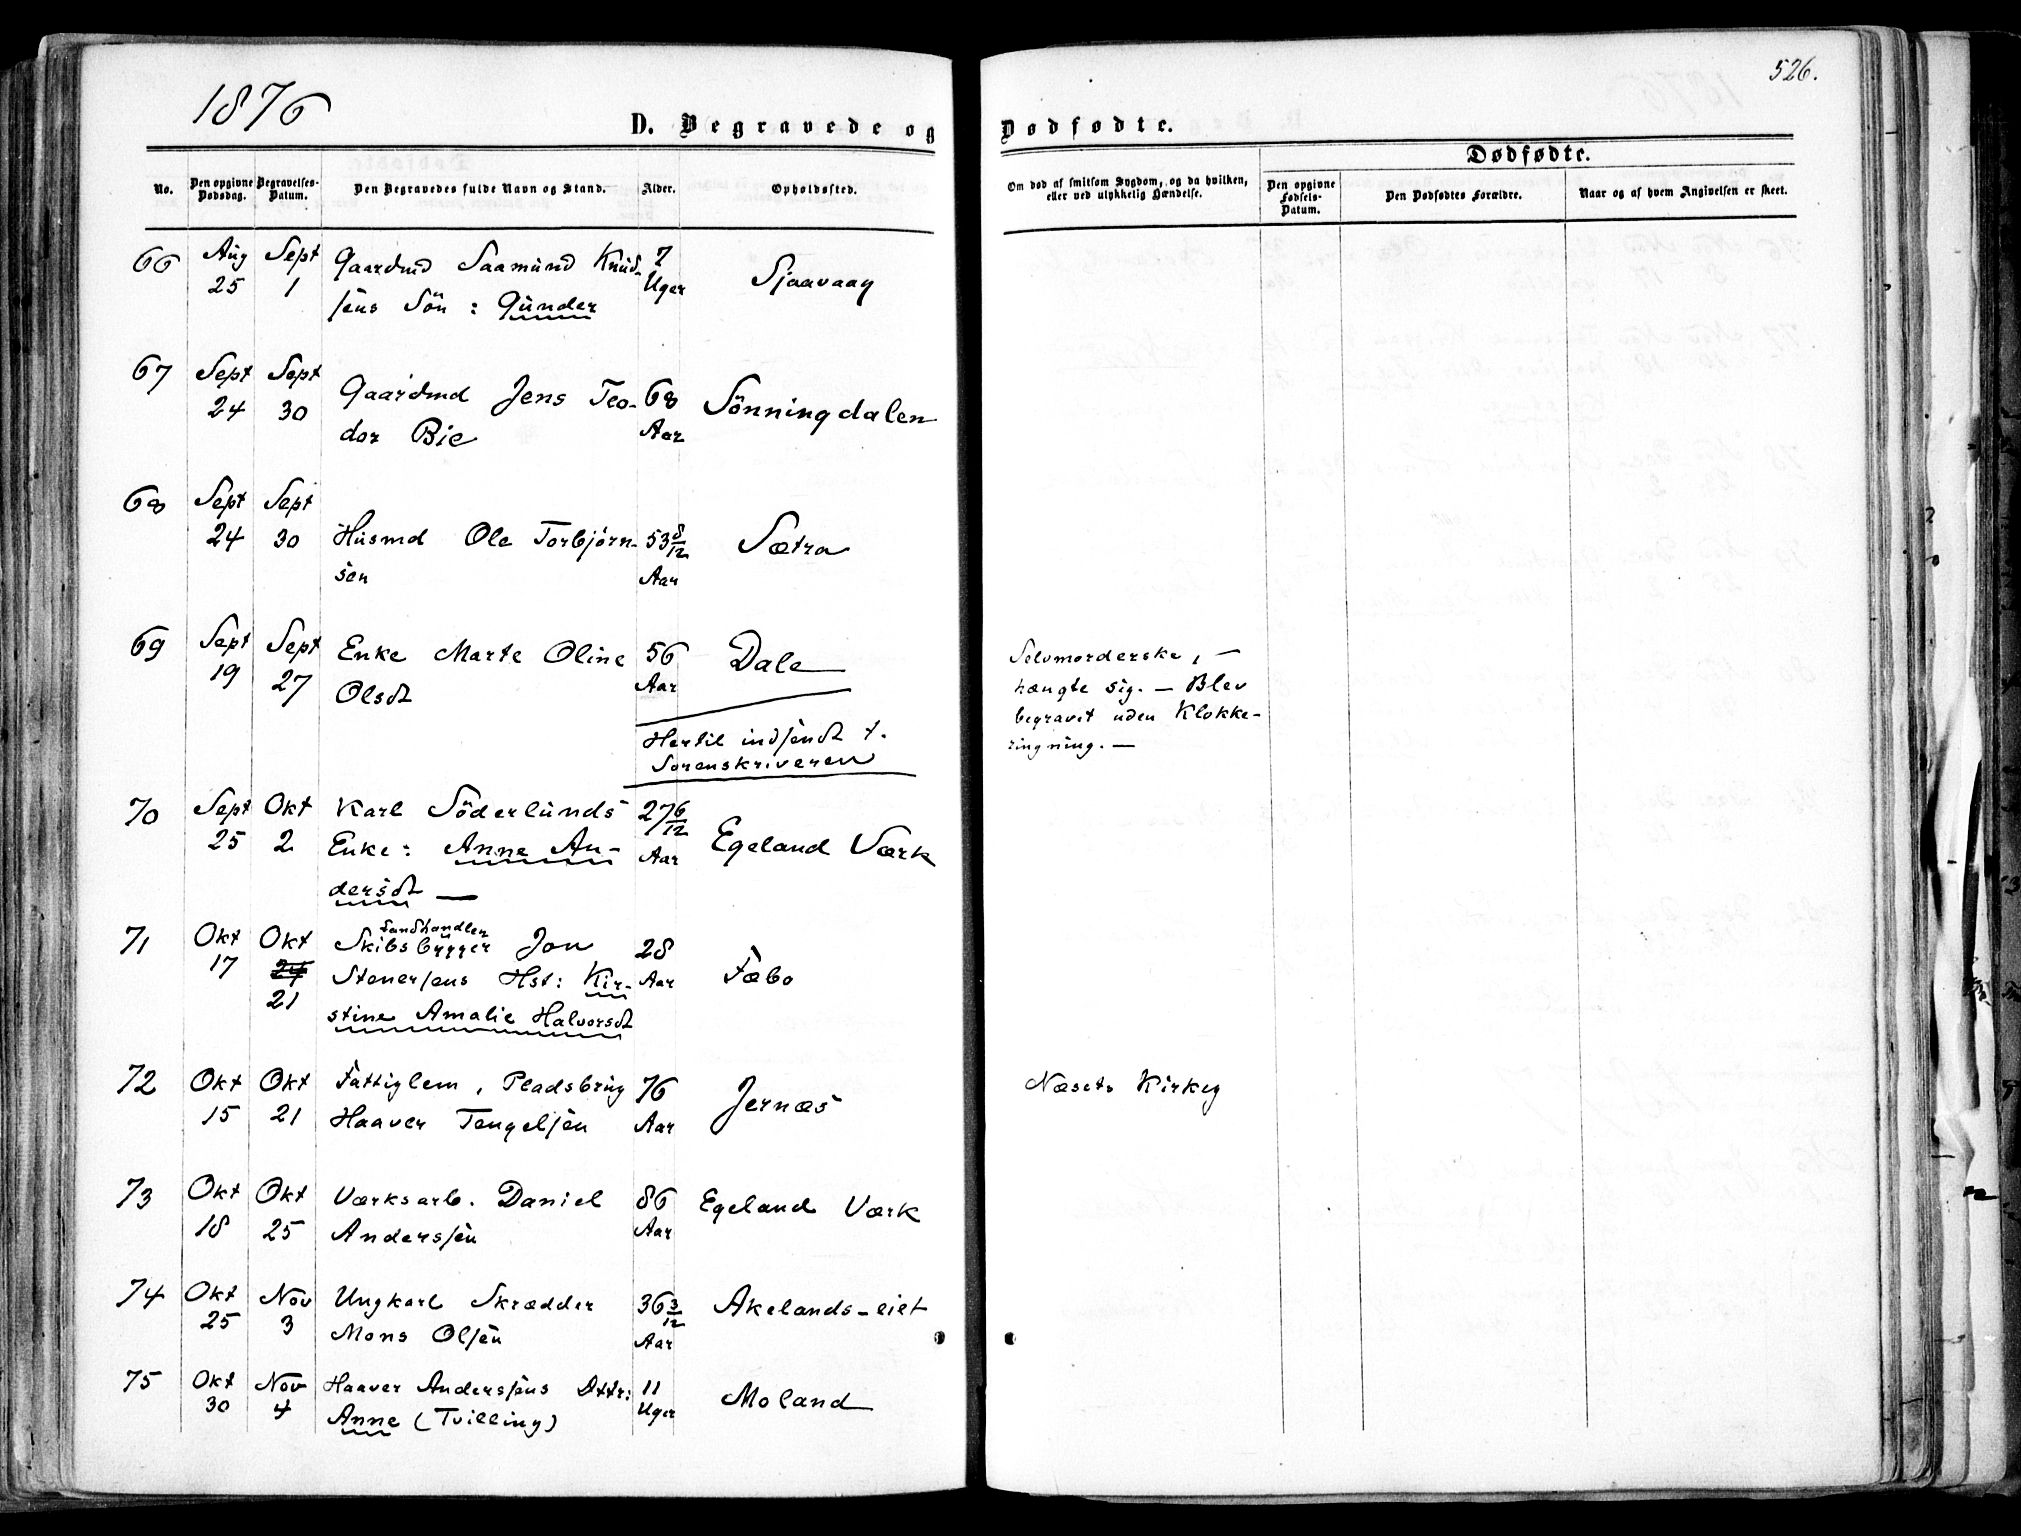 1876
526.
D. Begravede og Dødfødte.
Dødfødte.
No.
Den opgivne Dødsdag.
Begravelses-Datum.
Den Begravedes fulde Navn og Stand.
Alder.
Opholdssted.
Om død af smitsom Sygdom, og da hvilken,
eller ved ulykkelig Hændelse.
Den opgivne Fødsels-Datum.
Den Dødfødtes Forældre.
Naar og af hvem Angivelsen er skeet.
66 Aug 25 Sept 1
Gaardmd Saamund Knud-
sens Sön : Gunder
7 Uger
Sjaavaag
67 Sept 24 Sept 30
Gaardmd Jens Teo-
dor Bie
68 Aar
Sönningdalen
68 Sept 24 Sept 30
Husmd Ole Torbjörn-
sen
53 8/12 Aar
Sætra
69 Sept 19 Sept 27
Enke Marte Oline
Olsdt
56 Aar
Dale
Selvmorderske, —
hængte sig. — Blev
begravet uden Klokke-
ringning. —
Hertil indsendt t.
Sorenskriveren
70 Sept 25 Okt 2
Karl Söderlunds
Enke: Anne An-
dersdt —
27 6/12 Aar
Egeland Værk
71 Okt 17 Okt 24 21
Landhandler
Skibsbygger Jon
Stenersens Hst: Kir-
stine Amalie Halvorsdt
28 Aar
Fæbo
72 Okt 15 Okt 21
Fattiglem, Pladsbrug
Haaver Tengelsen
76 Aar
Jernæs
Næsets Kirkeg
73 Okt 18 Okt 25
Værksarb. Daniel
Anderssen
86 Aar
Egeland Værk
74 Okt 25 Nov 3
Ungkarl Skrædder
Mons Olsen
36 3/12 Aar
Akelands-eiet
75 Okt 30 Nov 4
Haaver Anderssens Dttr:
Anne (Tvilling)
11 Uger
Moland